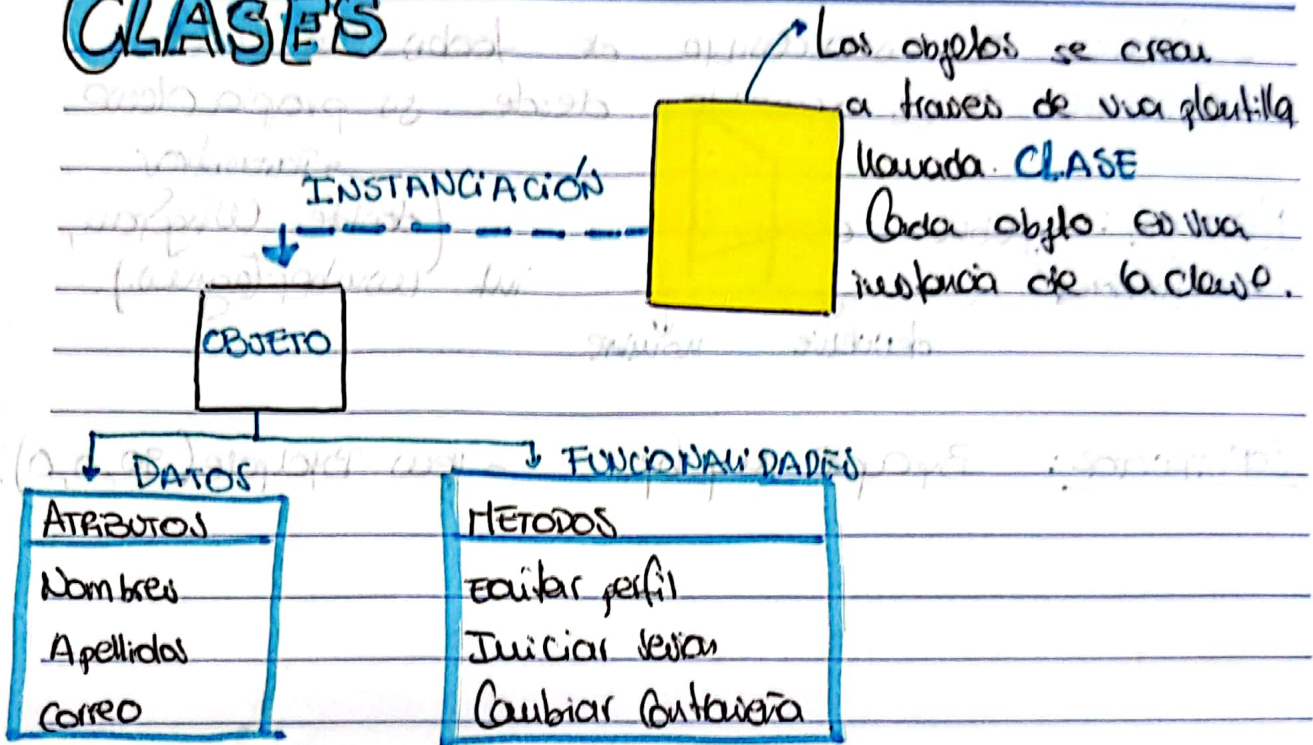 CLASES
Los objetos se crean
a traves de una plantilla
llamada. CLASE
Cada objeto es una
instancia de la clase.
INSTANCIACIÓN
OBJETO
DATOS
ATRIBUTOS
Nombres
Apellidos
Correo
FUNCIONALIDADES
METODOS
Editar perfil
Iniciar sesion
Cambiar Contraseña